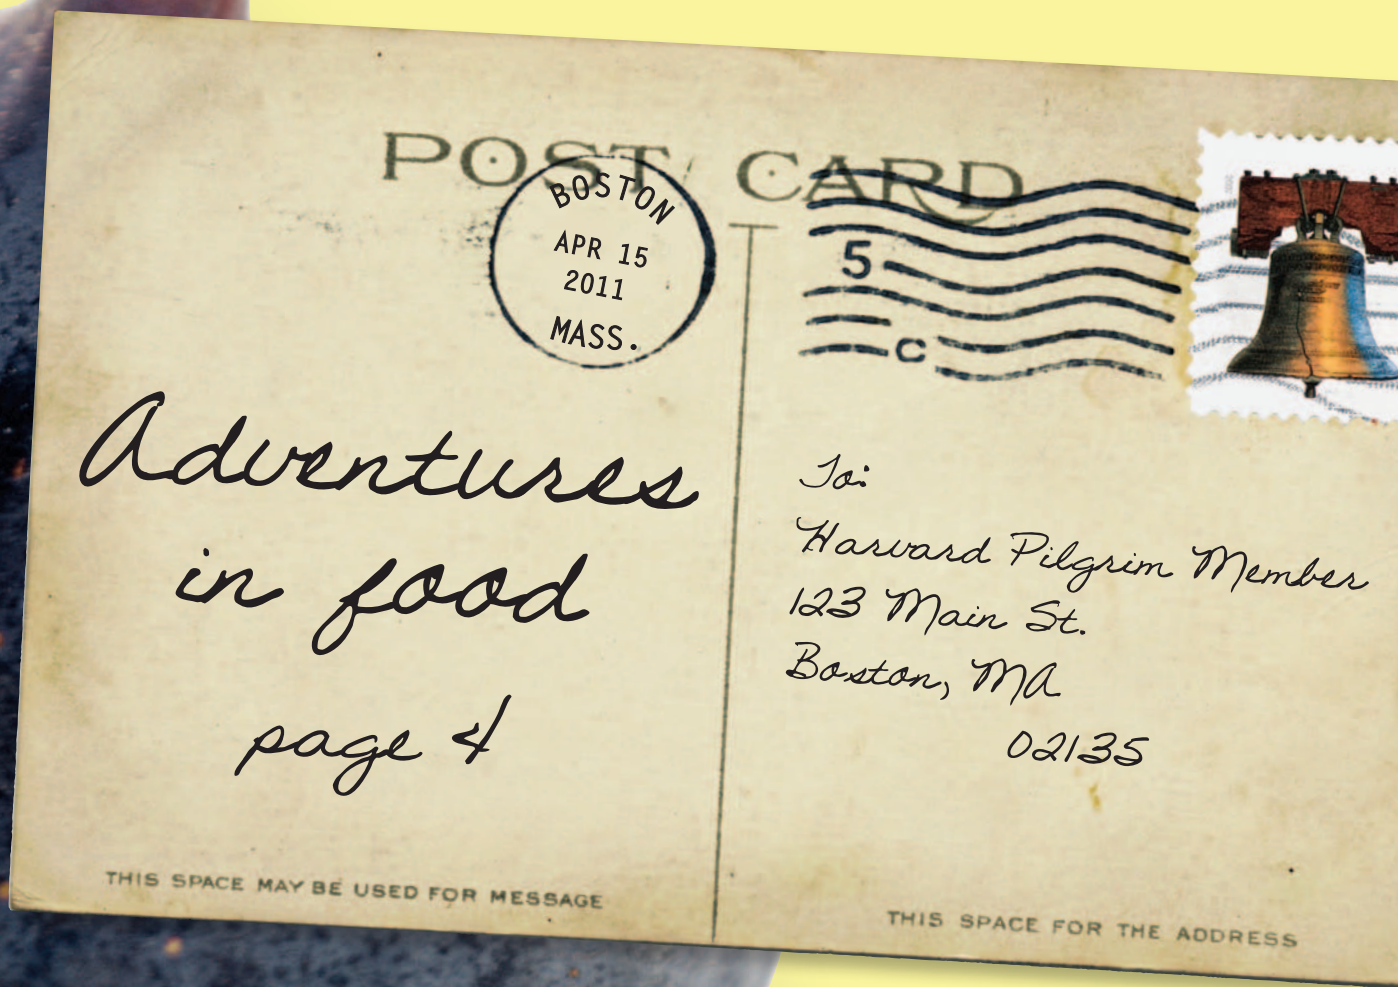 POST CARD
BOSTON
APR 15
2011
MASS.
5
C
Adventures
in food
page 4
To:
Harvard Pilgrim Member
123 Main St.
Boston, MA
02135
THIS SPACE MAY BE USED FOR MESSAGE
THIS SPACE FOR THE ADDRESS